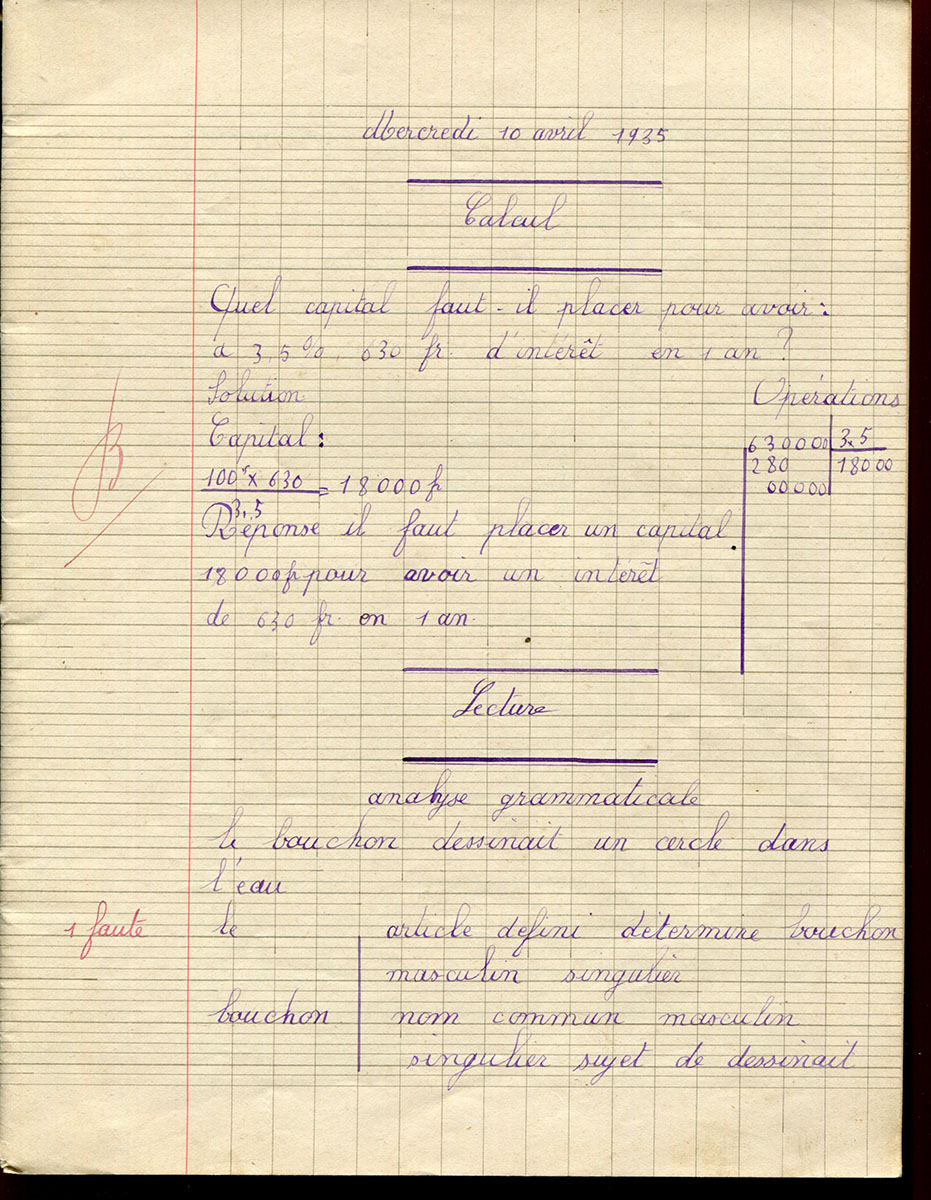 Mercredi 10 avril 1935
Calcul
Quel capital faut-il placer pour avoir :
à 3,5%, 630 fr. d'intérêt en 1 an ?
Solution
Opérations
Capital :
100f x 630 = 18000f
3,5
630000 3,5
280 18000
00000
B
Réponse il faut placer un capital
18000f pour avoir un intérêt
de 630 fr. en 1 an.
Lecture
analyse grammaticale
le bouchon dessinait un cercle dans
l'éau
1 faute
le article défini détermine bouchon
masculin singulier
bouchon nom commun masculin
singulier sujet de dessinait